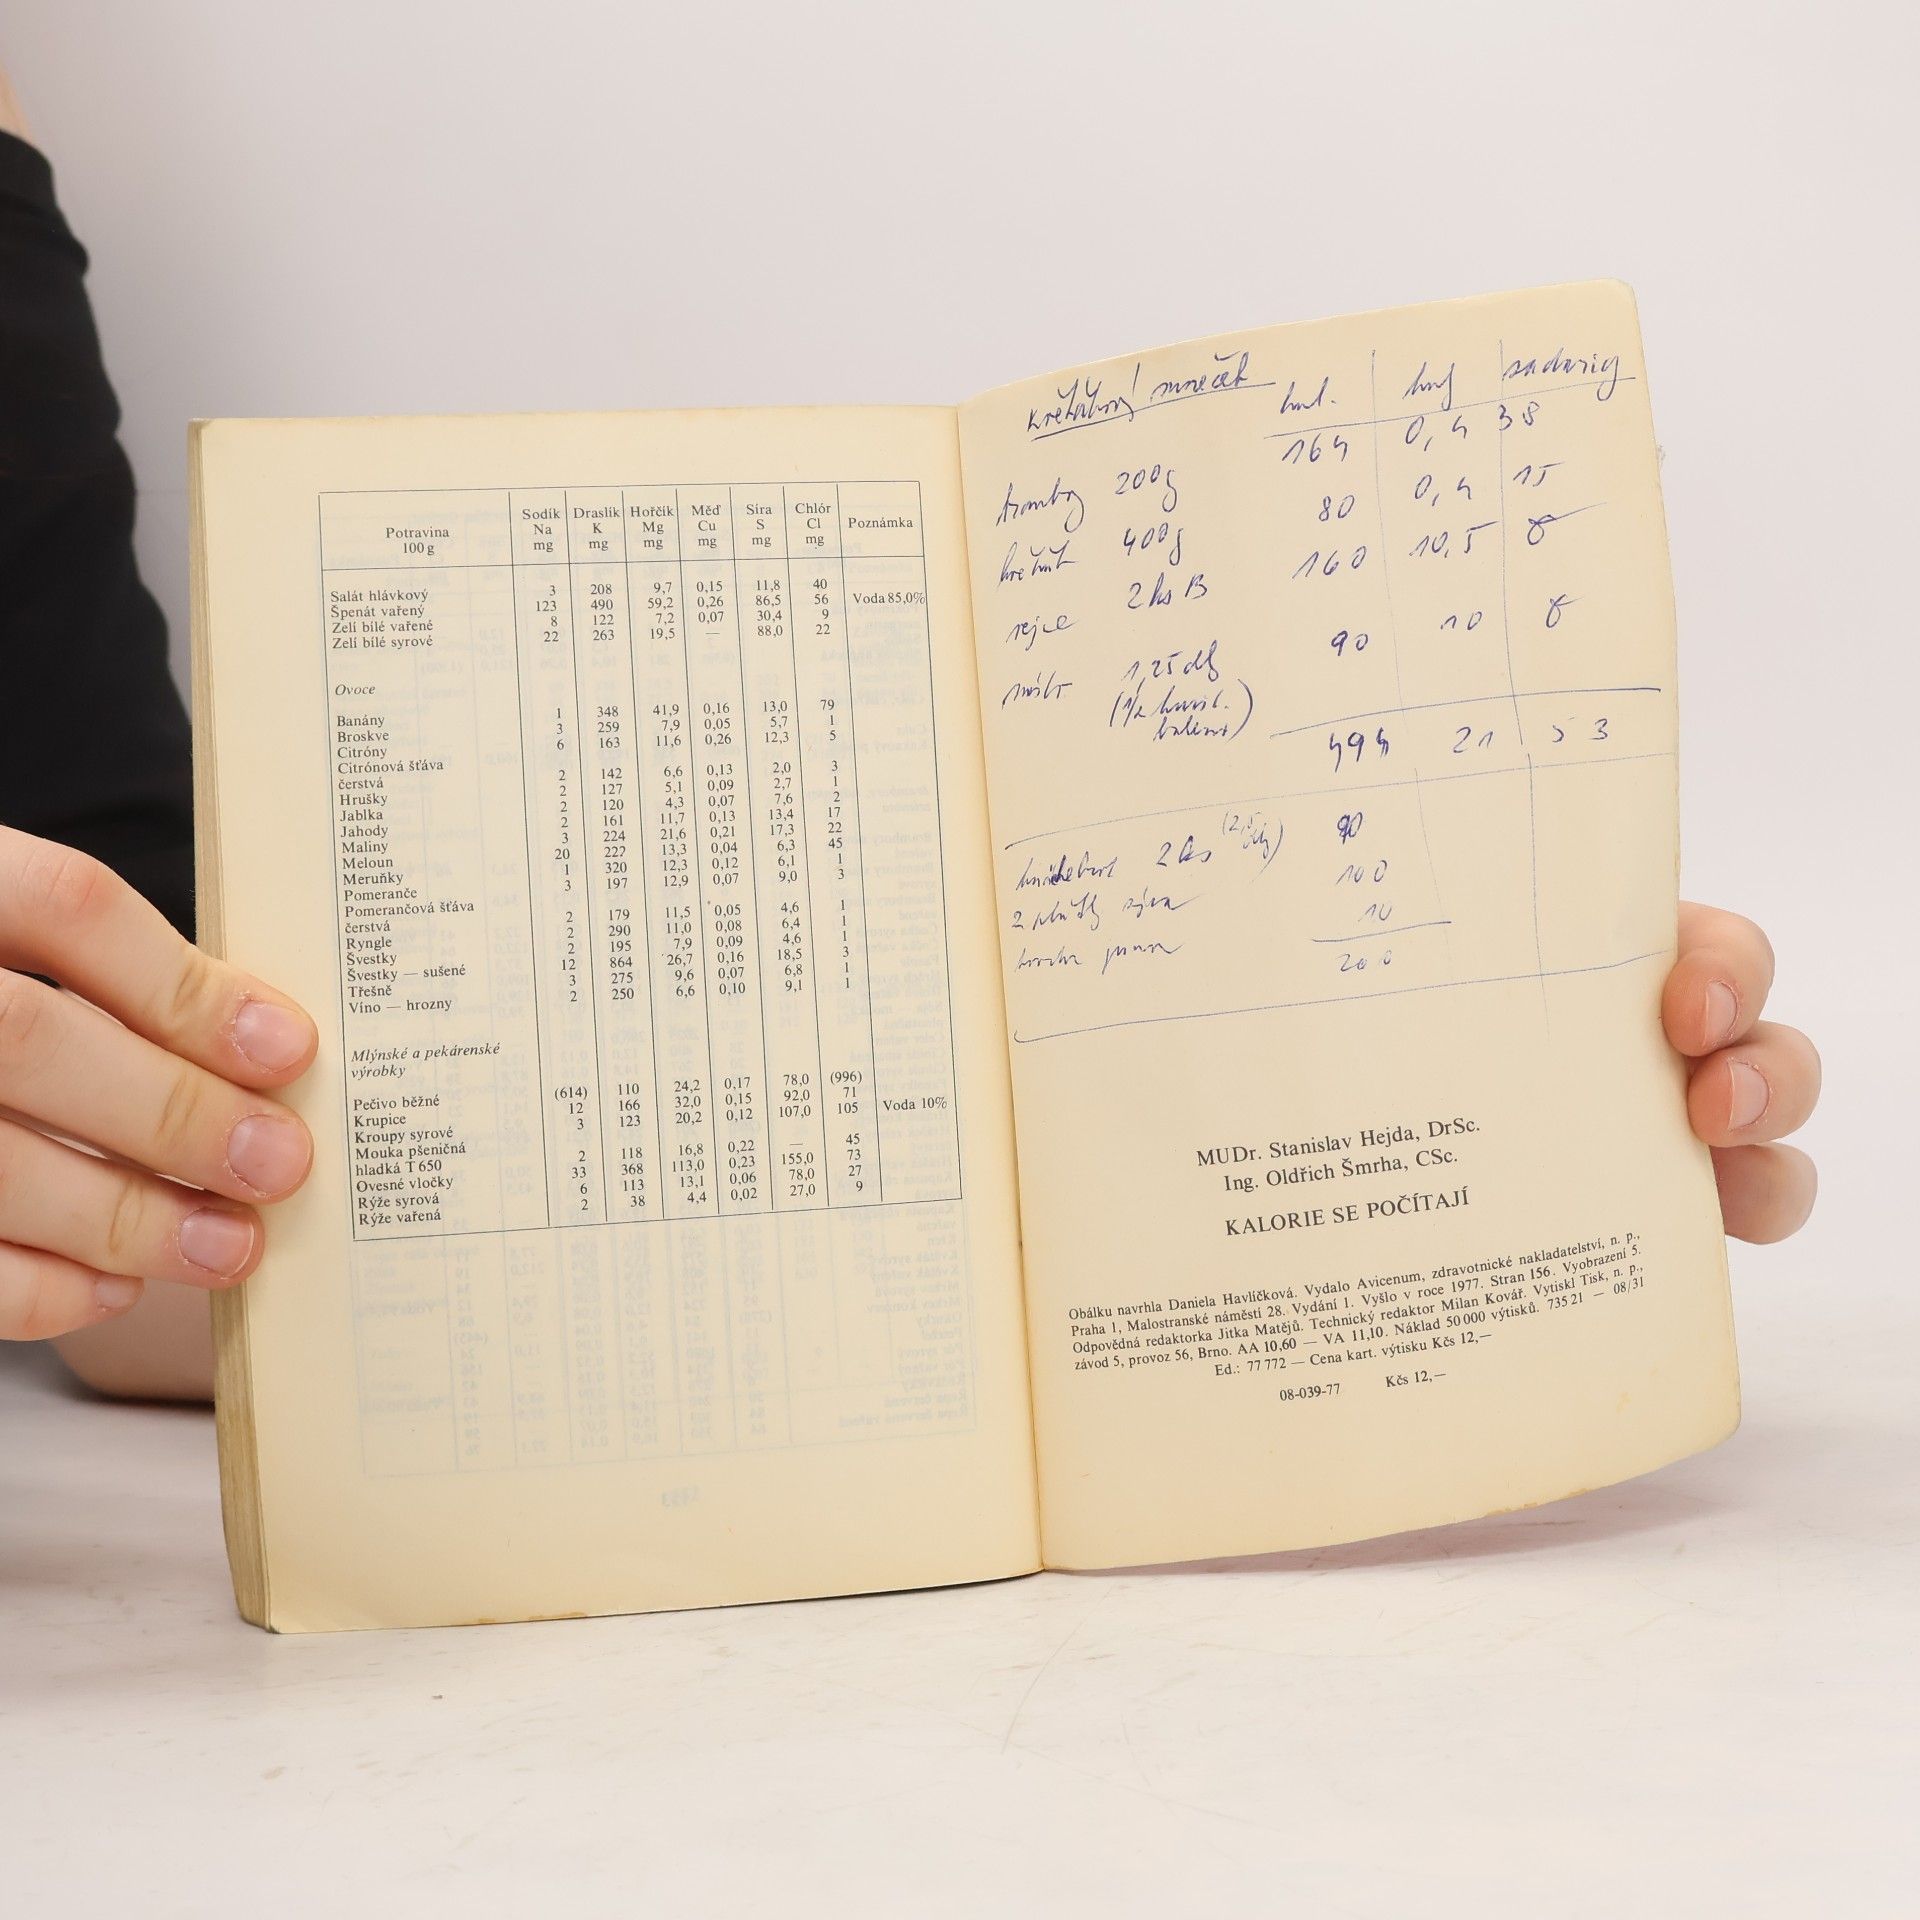 Potravina 100 g | Sodík Na mg | Draslík K mg | Hořčík Mg mg | Měď Cu mg | Síra S mg | Chlór Cl mg | Poznámka
Salát hlávkový 3 208 9,7 0,15 11,8 40
Špenát vařený 123 490 59,2 0,26 86,5 56 Voda 85,0%
Zelí bílé vařené 8 122 7,2 0,07 30,4 9
Zelí bílé syrové 22 263 19,5 — 88,0 22
Ovoce
Banány 1 348 41,9 0,16 13,0 79
Broskve 3 259 7,9 0,05 5,7 1
Citróny 6 163 11,6 0,26 12,3 5
Citrónová šťáva
čerstvá 2 142 6,6 0,13 2,0 3
Hrušky 2 127 5,1 0,09 2,7 1
Jablka 2 120 4,3 0,07 7,6 2
Jahody 2 161 11,7 0,13 13,4 17
Maliny 3 224 21,6 0,21 17,3 22
Meloun 20 227 13,3 0,04 6,3 45
Meruňky 1 320 12,3 0,12 6,1 1
Pomeranče 3 197 12,9 0,07 9,0 3
Pomerančová šťáva
čerstvá 2 179 11,5 0,05 4,6 1
Ryngle 2 290 11,0 0,08 6,4 1
Švestky 2 195 7,9 0,09 4,6 1
Švestky — sušené 12 864 26,7 0,16 18,5 3
Třešně 3 275 9,6 0,07 6,8 1
Víno — hrozny 2 250 6,6 0,10 9,1 1
Mlýnské a pekárenské
výrobky
Pečivo běžné (614) 110 24,2 0,17 78,0 (996)
Krupice 12 166 32,0 0,15 92,0 71
Kroupy syrové 3 123 20,2 0,12 107,0 105 Voda 10%
Mouka pšeničná
hladká T 650 2 118 16,8 0,22 — 45
Ovesné vločky 33 368 113,0 0,23 155,0 73
Rýže syrová 6 113 13,1 0,06 78,0 27
Rýže vařená 2 38 4,4 0,02 27,0 9
květákový
200g 164 0,4 38
květák 400g 80 0,4 15
vejce 2 ks B 160 10,5
1,25 dl 90 10
(1/2
494 21 53
2 ks (2,5 dl) 90
2 sýra 100
trocha 10
200
MUDr. Stanislav Hejda, DrSc.
Ing. Oldřich Šmrha, CSc.
KALORIE SE POČÍTAJÍ
Obálku navrhla Daniela Havlíčková. Vydalo Avicenum, zdravotnické nakladatelství, n. p.,
Praha 1, Malostranské náměstí 28. Vydání 1. Vyšlo v roce 1977. Stran 156. Vyobrazení 5.
Odpovědná redaktorka Jitka Matějů. Technický redaktor Milan Kovář. Vytiskl Tisk, n. p.,
závod 5, provoz 56, Brno. AA 10,60 — VA 11,10. Náklad 50 000 výtisků. 735 21 — 08/31
Ed.: 77 772 — Cena kart. výtisku Kčs 12,—
08-039-77 Kčs 12,—